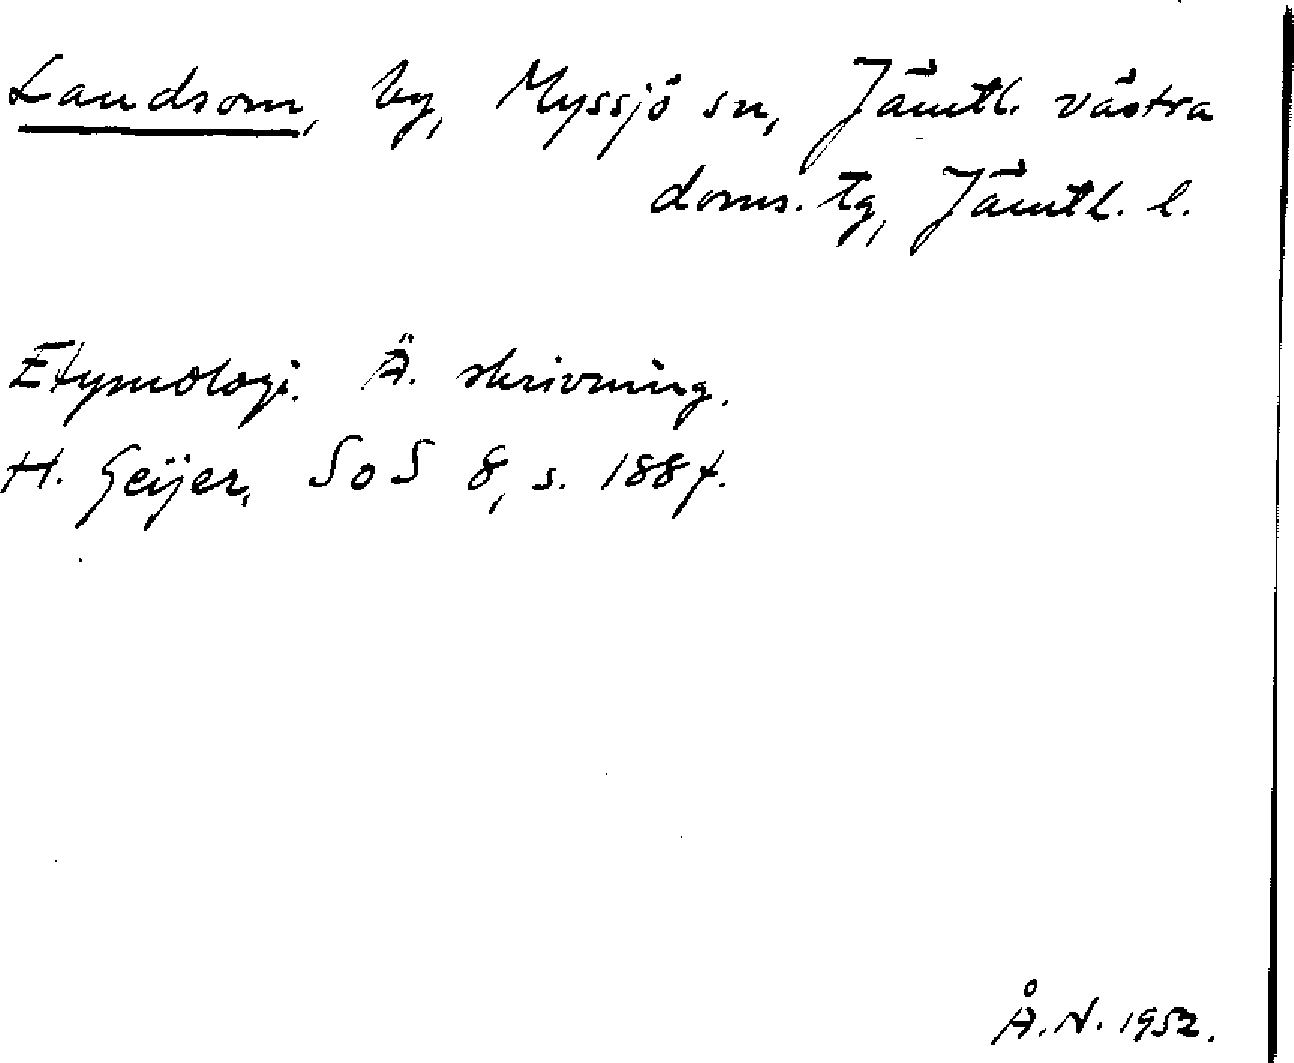 Landsom, by, Myssjö sn, Jämtl. västra
doms. tg, Jämtl. l.
Etymologi. Ä. skrivning.
H. Geijer, SoS 8, s. 1884.
Å. N. 1952.